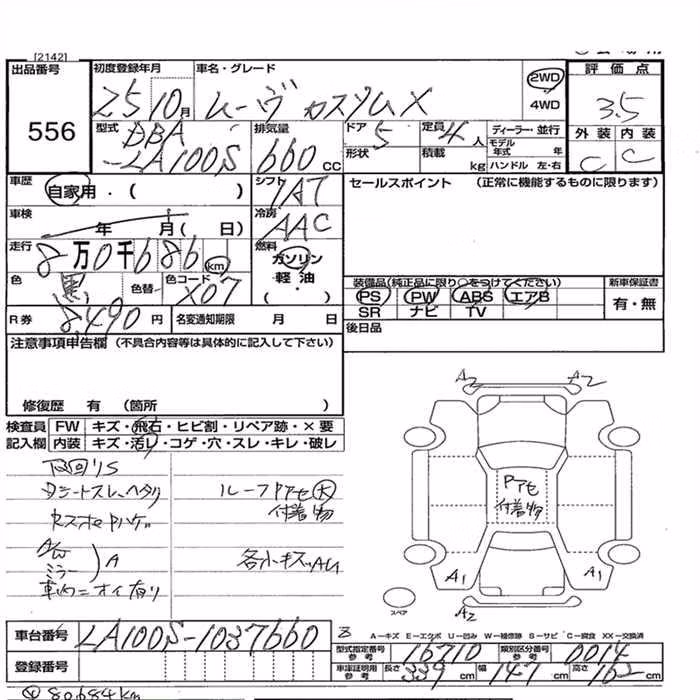 [2142]
出品番号
556
初度登録年月
25 10月
車名・グレード
ムーヴ カスタム X
2WD
4WD
評価点
3.5
外装 内装
C C
型式
DBA
-LA100S
排気量
660 CC
ドア 5
形状
定員 4人
積載 kg
ディーラー・並行
モデル年式 年
ハンドル 左・右
車歴
自家用・( )
シフト
IAT
セールスポイント (正常に機能するものに限ります)
車検
年 月( 日)
冷房
AAC
走行
8万0千686 km
燃料
ガソリン
軽油
・
色
色替
色コード
X07
装備品(純正品に限り○をつけてください)
PS PW ABS エアB
SR ナビ TV
新車保証書
有・無
R券
8,490円
名変通知期限 月 日
後日品
注意事項申告欄 (不具合内容等は具体的に記入して下さい)
修復歴 有 (箇所 )
検査員 FW キズ・飛石・ヒビ割・リペア跡・×要
記入欄 内装 キズ・汚レ・コゲ・穴・スレ・キレ・破レ
下回りS
Dシートスレ、ヘタリ
ルーフPアセ 大
付着物
A/W
ミラー
A
車内ニオイ有り
各小キズ、AU
A2 A2
Pアセ
付着物
A1 A1
A2
スペア
車台番号
LA100S-1037660
登録番号
A-キズ E-エクボ U-凹み W-補修跡 S-サビ C-腐食 XX-交換済
型式指定番号 参考
16710
類別区分番号 参考
0014
車庫証明用 参考
長さ 339cm 幅 147cm 高さ 162cm
80,684km